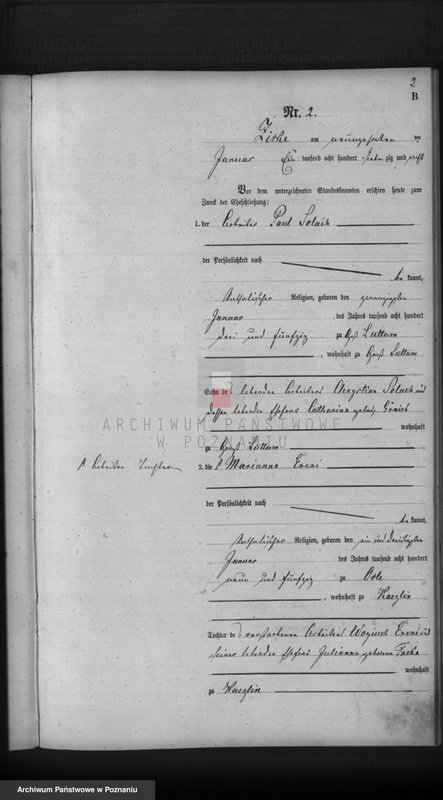 2
B
Nr. 2.
Zirke am neunzehnten ten
Januar Ein tausend acht hundert sieben zig und acht
Vor dem unterzeichneten Standesbeamten erschien heute zum
Zweck der Eheschließung:
1. der Arbeiter Paul Solach
der Persönlichkeit nach
be kannt,
katholischer Religion, geboren den zwanzigsten
Januar des Jahres tausend acht hundert
drei und fünfzig zu Groß Luttom
, wohnhaft zu Groß Luttom
Sohn de lebenden Arbeiters Chrystian Solach und
dessen lebenden Ehefrau Catharina geborene
wohnhaft
ARCHIWUM PAŃSTWOWE
W POZNANIU
zu Groß Luttom
Arbeiter Tochter
2. die Marianna
der Persönlichkeit nach
be kannt,
katholischer Religion, geboren den ein und dreißigsten
Januar des Jahres tausend acht hundert
neun und fünfzig zu Orle
, wohnhaft zu Kaczlin
Tochter de verstorbenen Arbeiters
seiner lebenden Ehefrau Julianna geborenen
wohnhaft
zu Kaczlin
Archiwum Państwowe w Poznaniu